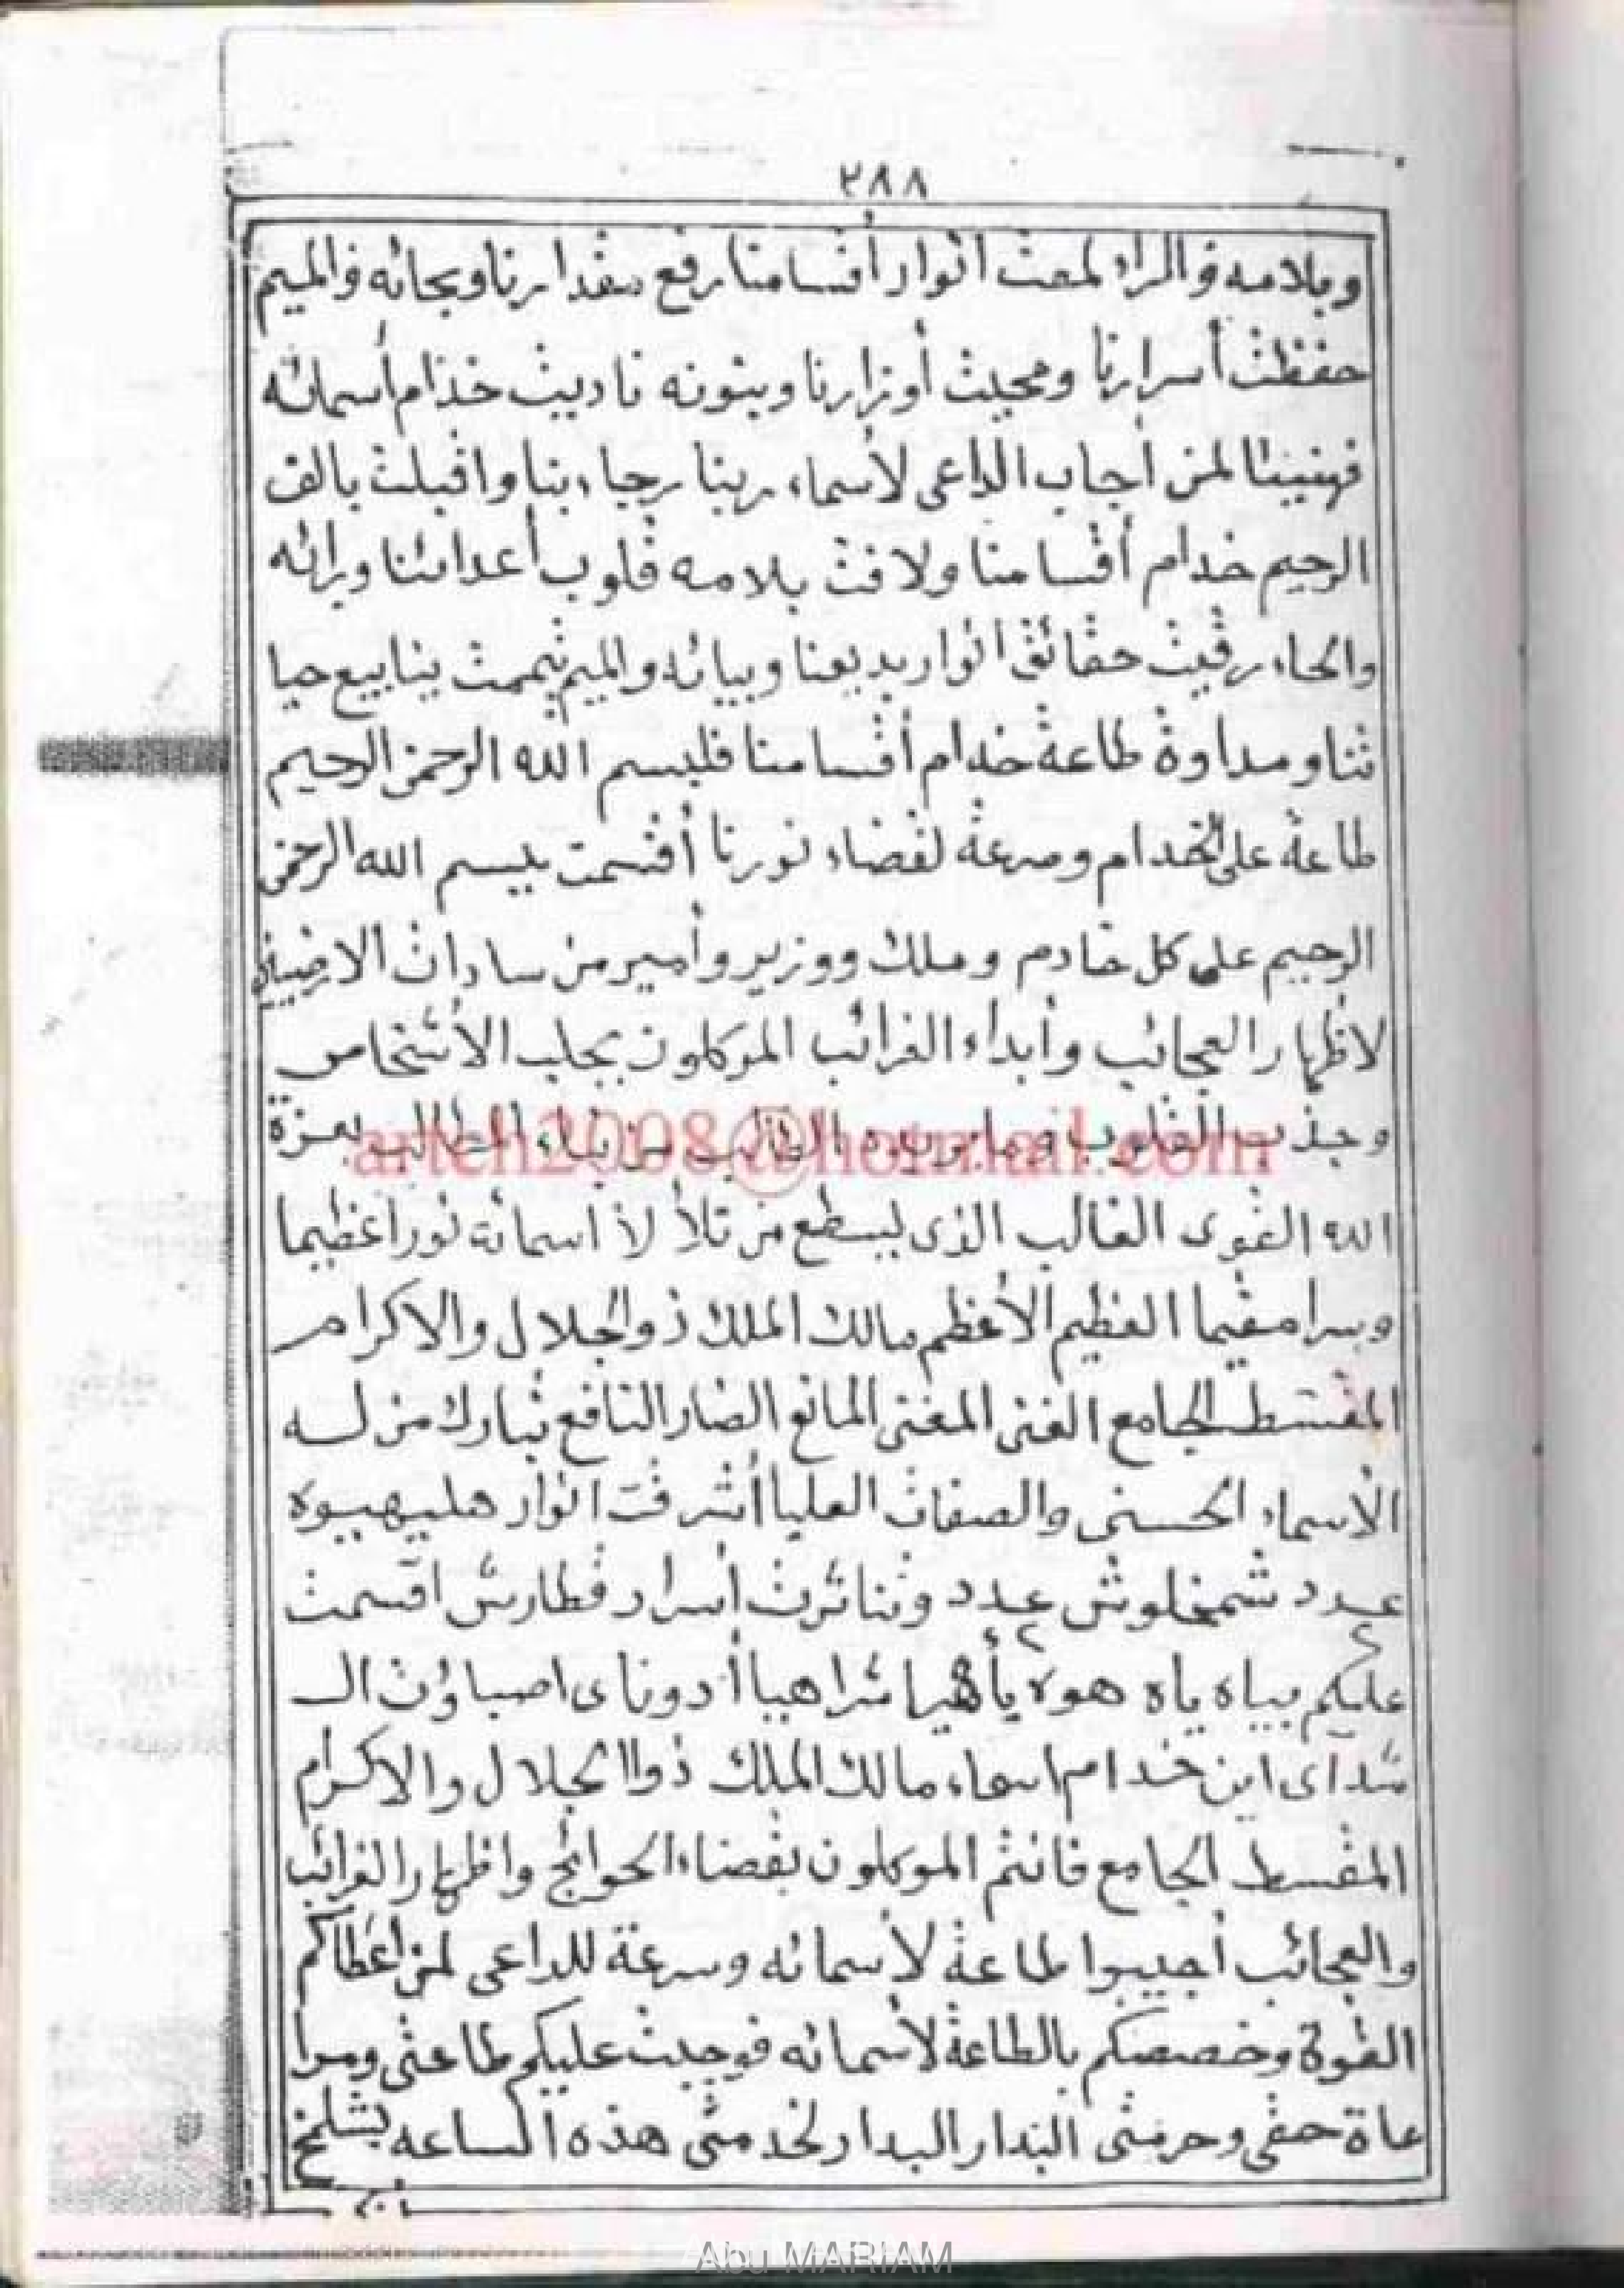 ٢٨٨
وبلامه والراء لمعت انوار أقسامنا رفع مقدارنا وبحائه والميم
حفظت أسرارنا ومحيت أوزارنا وبنونه ناديت خدام أسمائه
فهنيئا لمن أجاب الداعى لأسماء ربنا رجاء بنا واقبلت بالف
الرحيم خدام أقسامنا ولافت بلامه قلوب أعدائنا وبرائه
والحاء رقيت حقائق انوار بديعنا وبيائه والميم تممت ينابيع حيا
تنا ومداوة طاعة خدام أقسامنا فلبسم الله الرحمن الرحيم
طاعة على الخدام وسرعة لقضاء نورنا أقسمت ببسم الله الرحمن
الرحيم على كل خادم وملك ووزير وأمير من سادات الارضيين
لاظهار العجائب وأبداء الغرائب الموكلون بجلب الأشخاص
وجذب القلوب الطالب بعزة
الله القوى الغالب الذى يسطع من تلألأ اسمائه نورا عظيما
وسرا مقيما العظيم الأعظم مالك الملك ذو الجلال والاكرام
المقسط الجامع الغنى المغنى المانع الضار النافع تبارك من له
الأسماء الحسنى والصفات العليا أشرقت انوار هليهيوه
عدد شمخلوش عدد وتناثرت أسرار فطارش اقسمت
٢ ٢
عليكم بياه ياه هوه يأهيا شراهيا أدوناى اصباؤت ال
شداى اين خدام اسماء مالك الملك ذوا الجلال والاكرام
المقسط الجامع فانتم الموكلون بقضاء الحوائج واظهار الغرائب
والعجائب أجيبوا طاعة لأسمائه وسرعة للداعى لمن اعطاكم
القوة وخصصكم بالطاعة لأسمائه فوجبت عليكم طاعتى ومرا
عاة حقى وحرمتى البدار البدار لخدمتى هذه الساعه بشلمخ
arteh2008@hotmail.com
Abu MARIAM